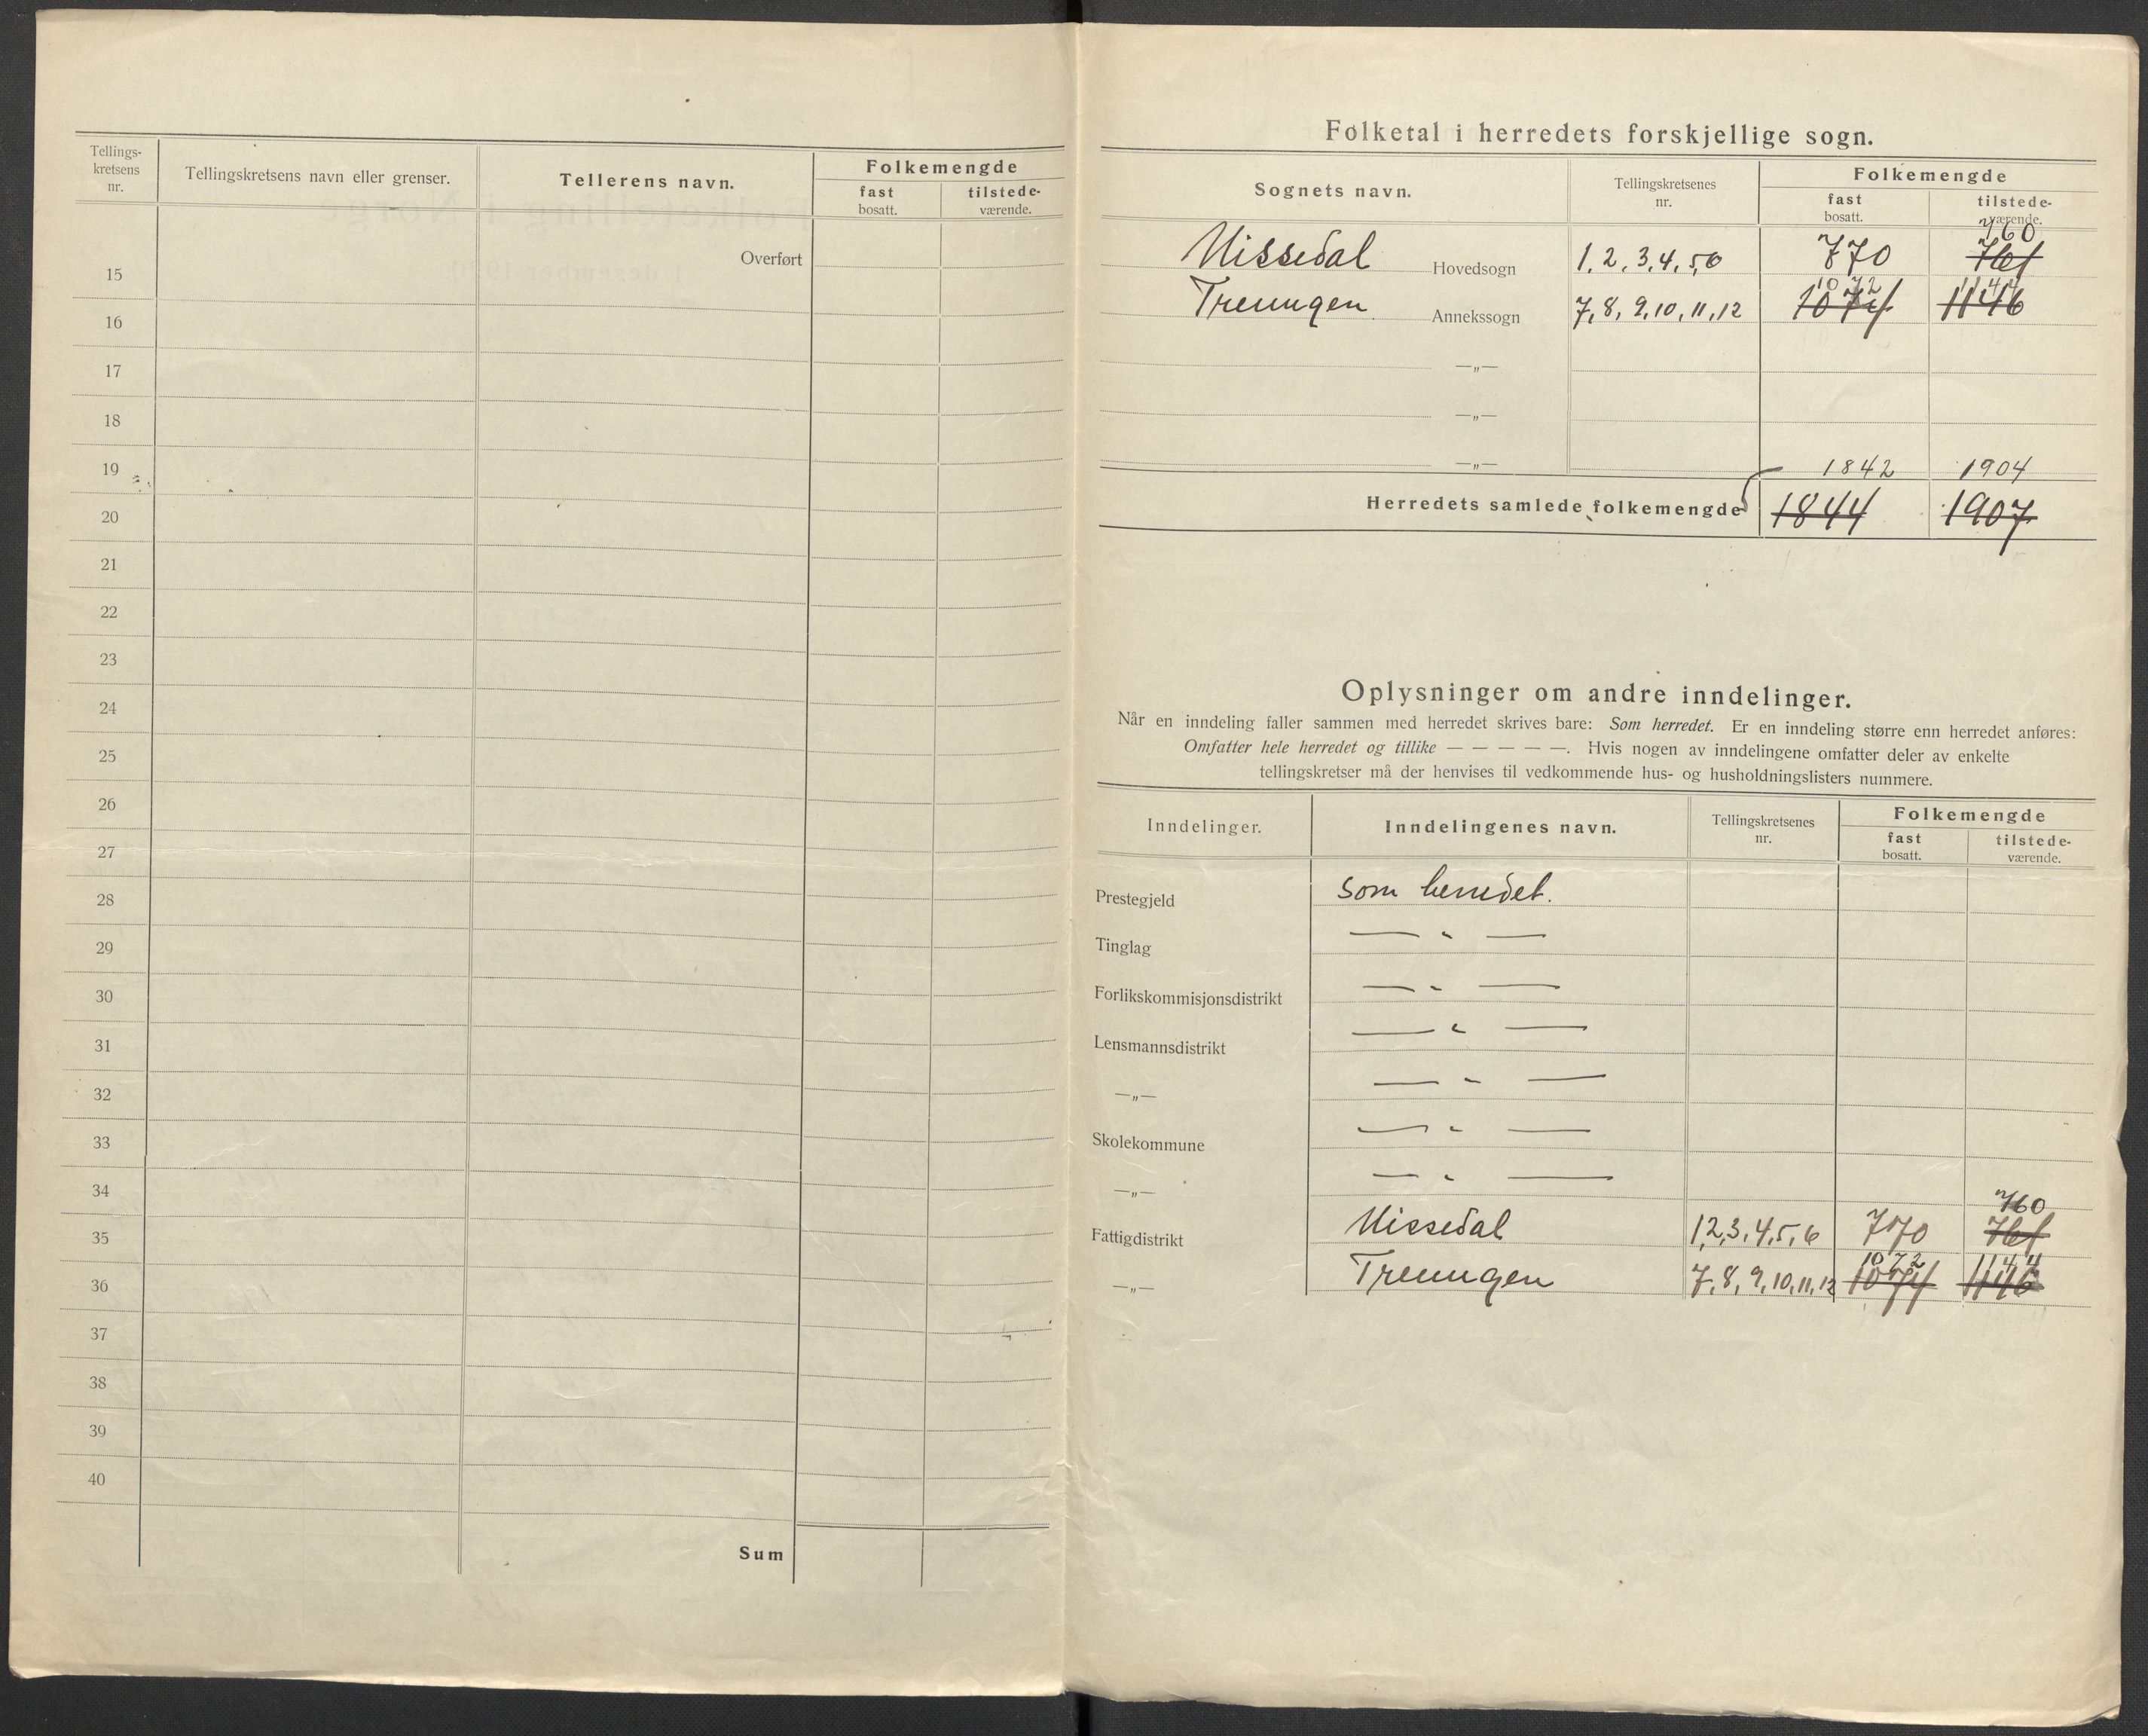 Tellings-
kretsens
nr.
Tellingskretsens navn eller grenser.
Tellerens navn.
Folkemengde
fast
bosatt.
tilstede-
værende.
Overført
15
16
17
18
19
20
21
22
23
24
25
26
27
28
29
30
31
32
33
34
35
36
37
38
39
40
Sum
Folketal i herredets forskjellige sogn.
Sognets navn.
Tellingskretsenes
nr.
Folkemengde
fast
bosatt.
tilstede-
værende.
760
Nissedal Hovedsogn 1, 2, 3, 4, 5, 6 770 761
1072 1144
Treungen Annekssogn 7, 8, 9, 10, 11, 12 1074 1146
—„—
—„—
—„—
1842 1904
Herredets samlede folkemengde 1844 1907
Oplysninger om andre inndelinger.
Når en inndeling faller sammen med herredet skrives bare: Som herredet. Er en inndeling større enn herredet anføres:
Omfatter hele herredet og tillike — — — — —. Hvis nogen av inndelingene omfatter deler av enkelte
tellingskretser må der henvises til vedkommende hus- og husholdningslisters nummere.
Inndelinger.
Inndelingenes navn.
Tellingskretsenes
nr.
Folkemengde
fast
bosatt.
tilstede-
værende.
Prestegjeld som herredet.
Tinglag — „ —
Forlikskommisjonsdistrikt — „ —
Lensmannsdistrikt — „ —
—„— — „ —
Skolekommune — „ —
—„— — „ —
760
Fattigdistrikt Nissedal 1, 2, 3, 4, 5, 6 770 761
1072 1144
—„— Treungen 7, 8, 9, 10, 11, 12 1074 1146